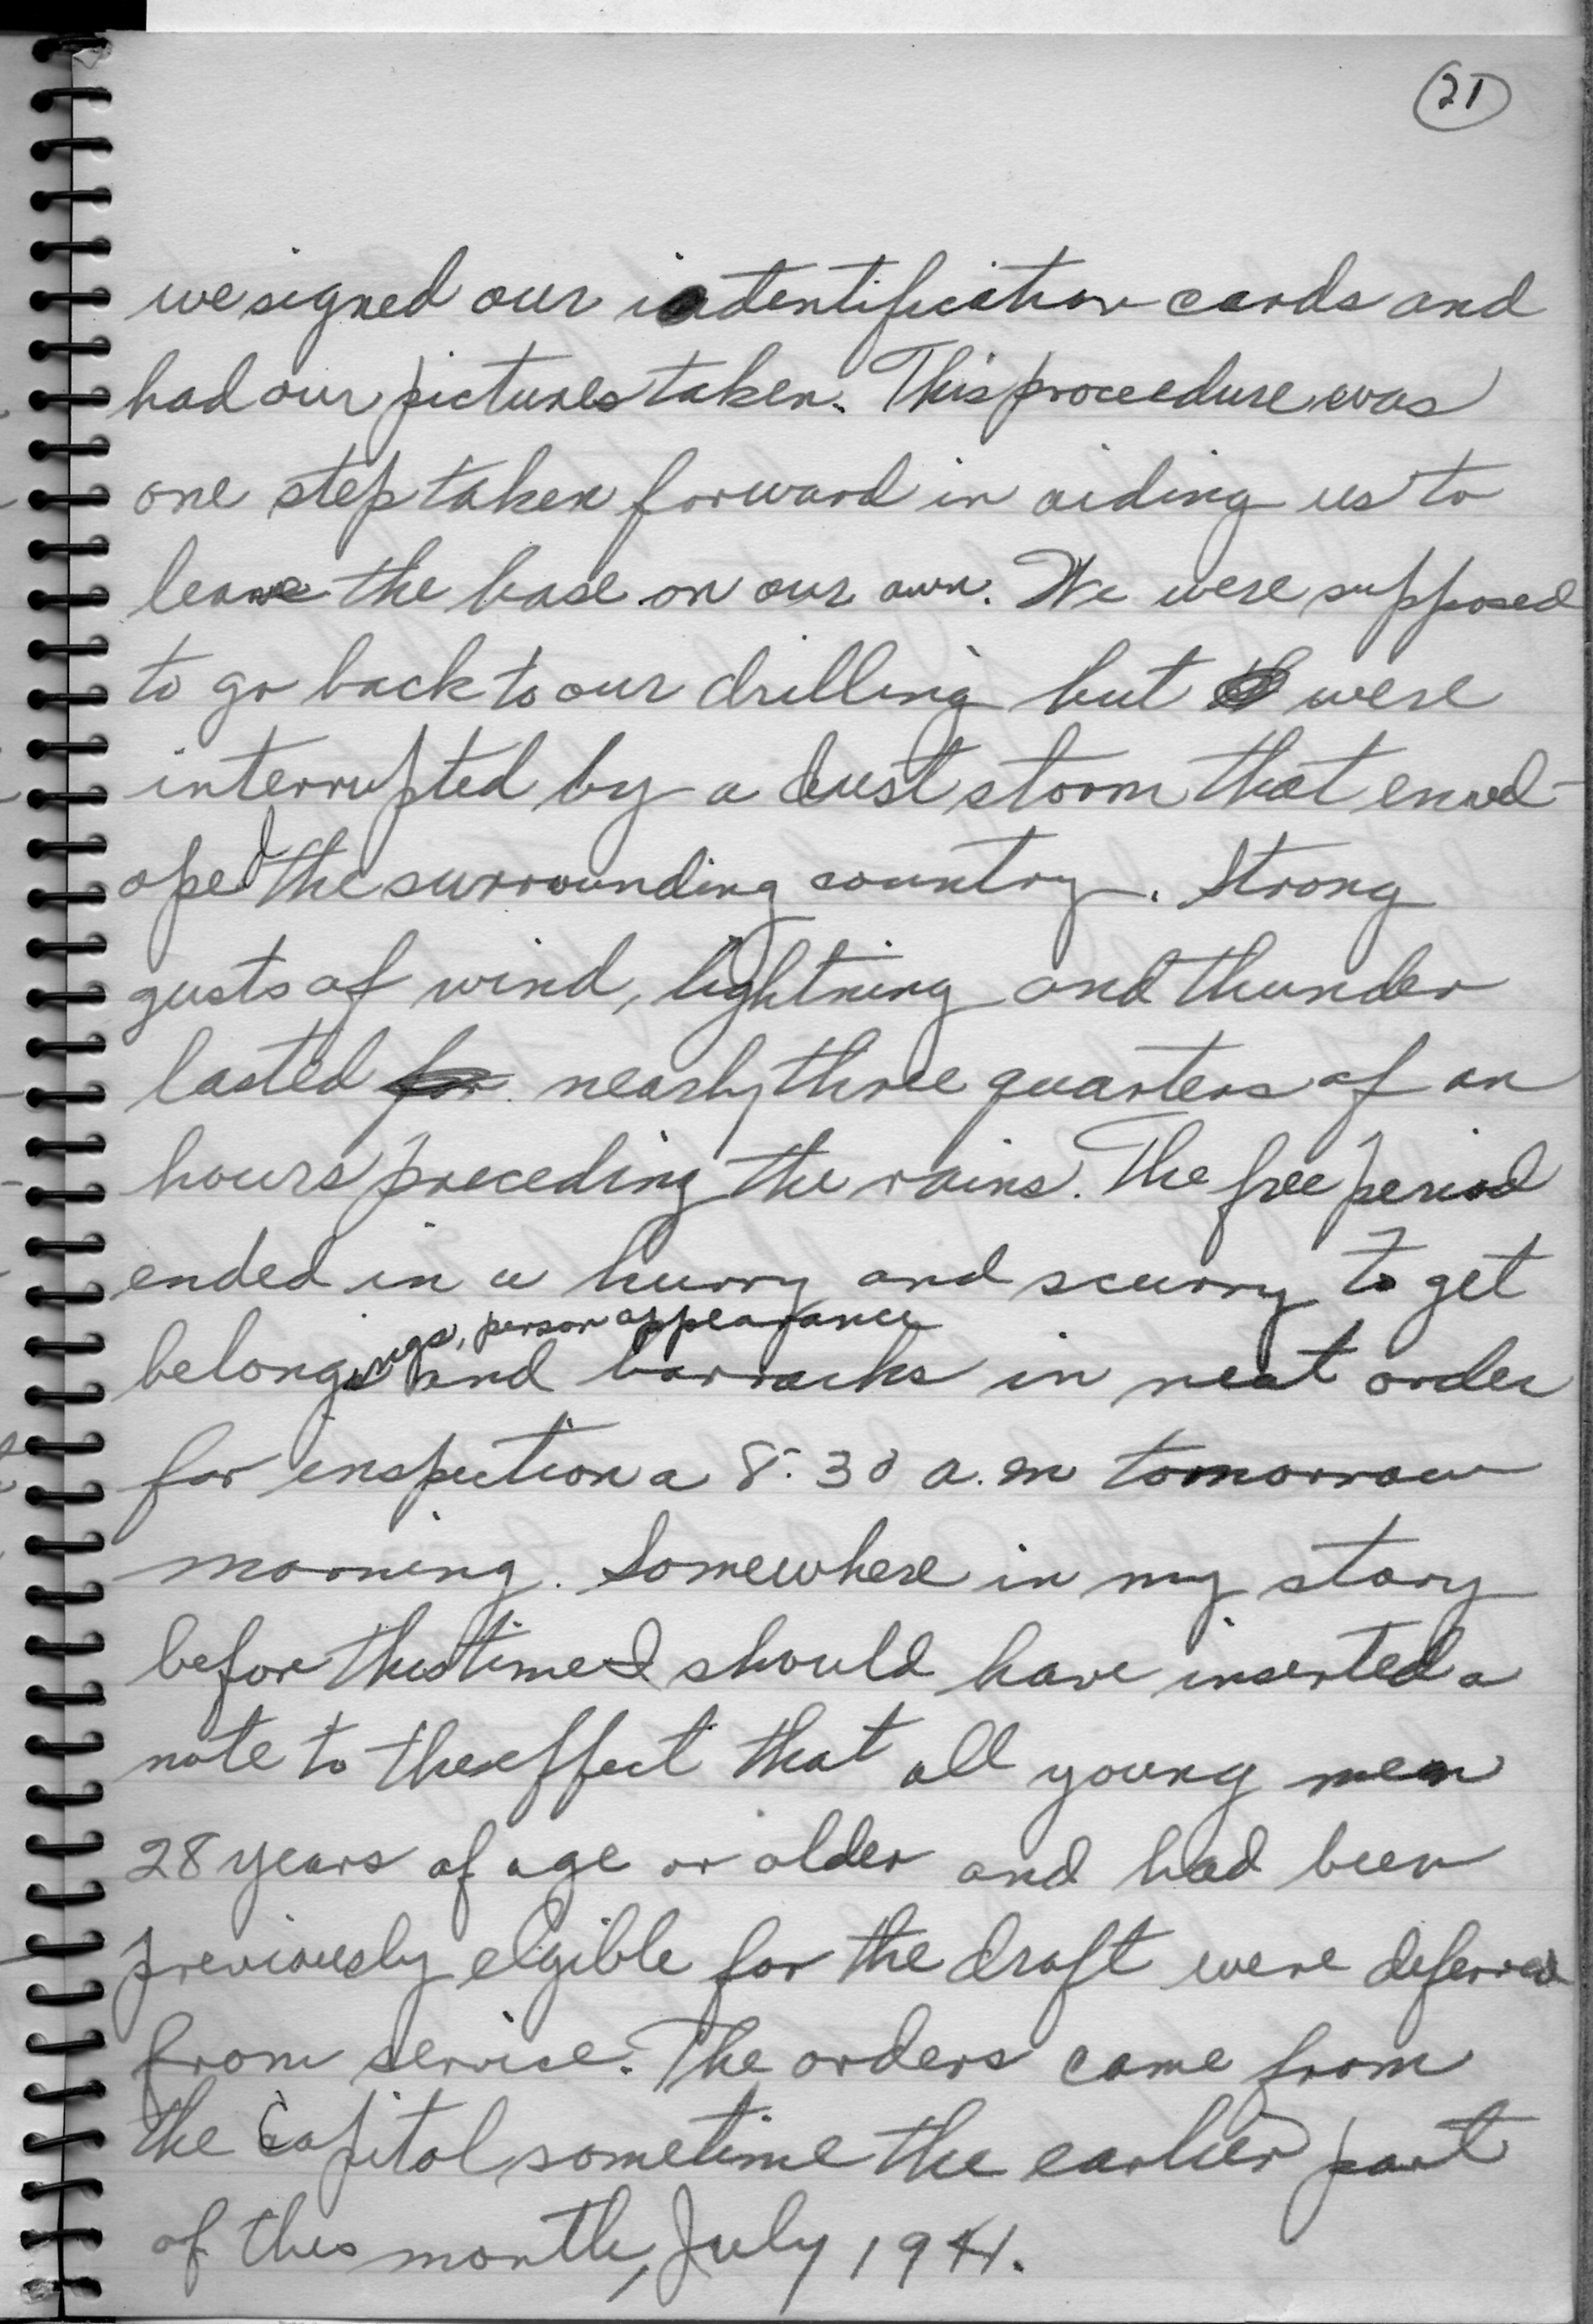 21
we signed our identification cards and
had our pictures taken. This proceedure was
one step taken forward in aiding us to
leave the base on our own. We were supposed
to go back to our drilling but were
interrupted by a dust storm that envel-
oped the surrounding country. Strong
gusts of wind, lightning and thunder
lasted for nearly three quarters of an
hours preceding the rains. The free period
ended in a hurry and scurry to get
belongings, person appearance
and barracks in neat order
for inspection a 8:30 a.m tomorrow
morning. Somewhere in my story
befor this time I should have inserted a
note to the effect that all young men
28 years of age or older and had been
previously elgible for the draft were deferred
from service. The orders came from
the Capitol sometime the earlier part
of this month, July 1941.